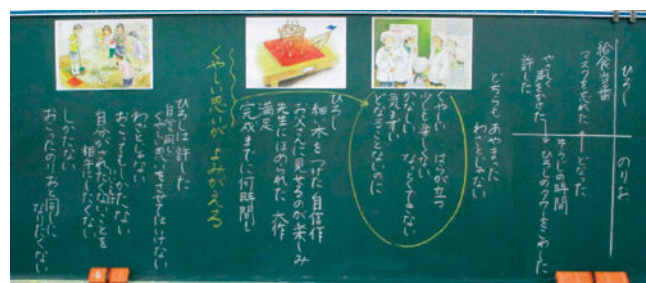 ひろし
のりお
給食当番
マスクを忘れた
どなった
そうじの時間
やめ
ひろしのタワーをこわした
許した
どちらも あやまった
わざとじゃない
くやしい はらが立つ
少しも楽しくない
かなしい なっとくできない
気まずい
どなることないのに
ひろし
細木をつけた自信作
お父さんに見せるのが楽しみ
先生にほめられた 大作
満足
完成までに何時間も
くやしい思いが よみがえる
ひろしは許した
自分と同じ
くやしい思いをさせてはいけない
わざとじゃない
おこってもしかたない
自分がされたくないことを
相手にしたくない
しかたない
おこったのりおと同じに
なりたくない